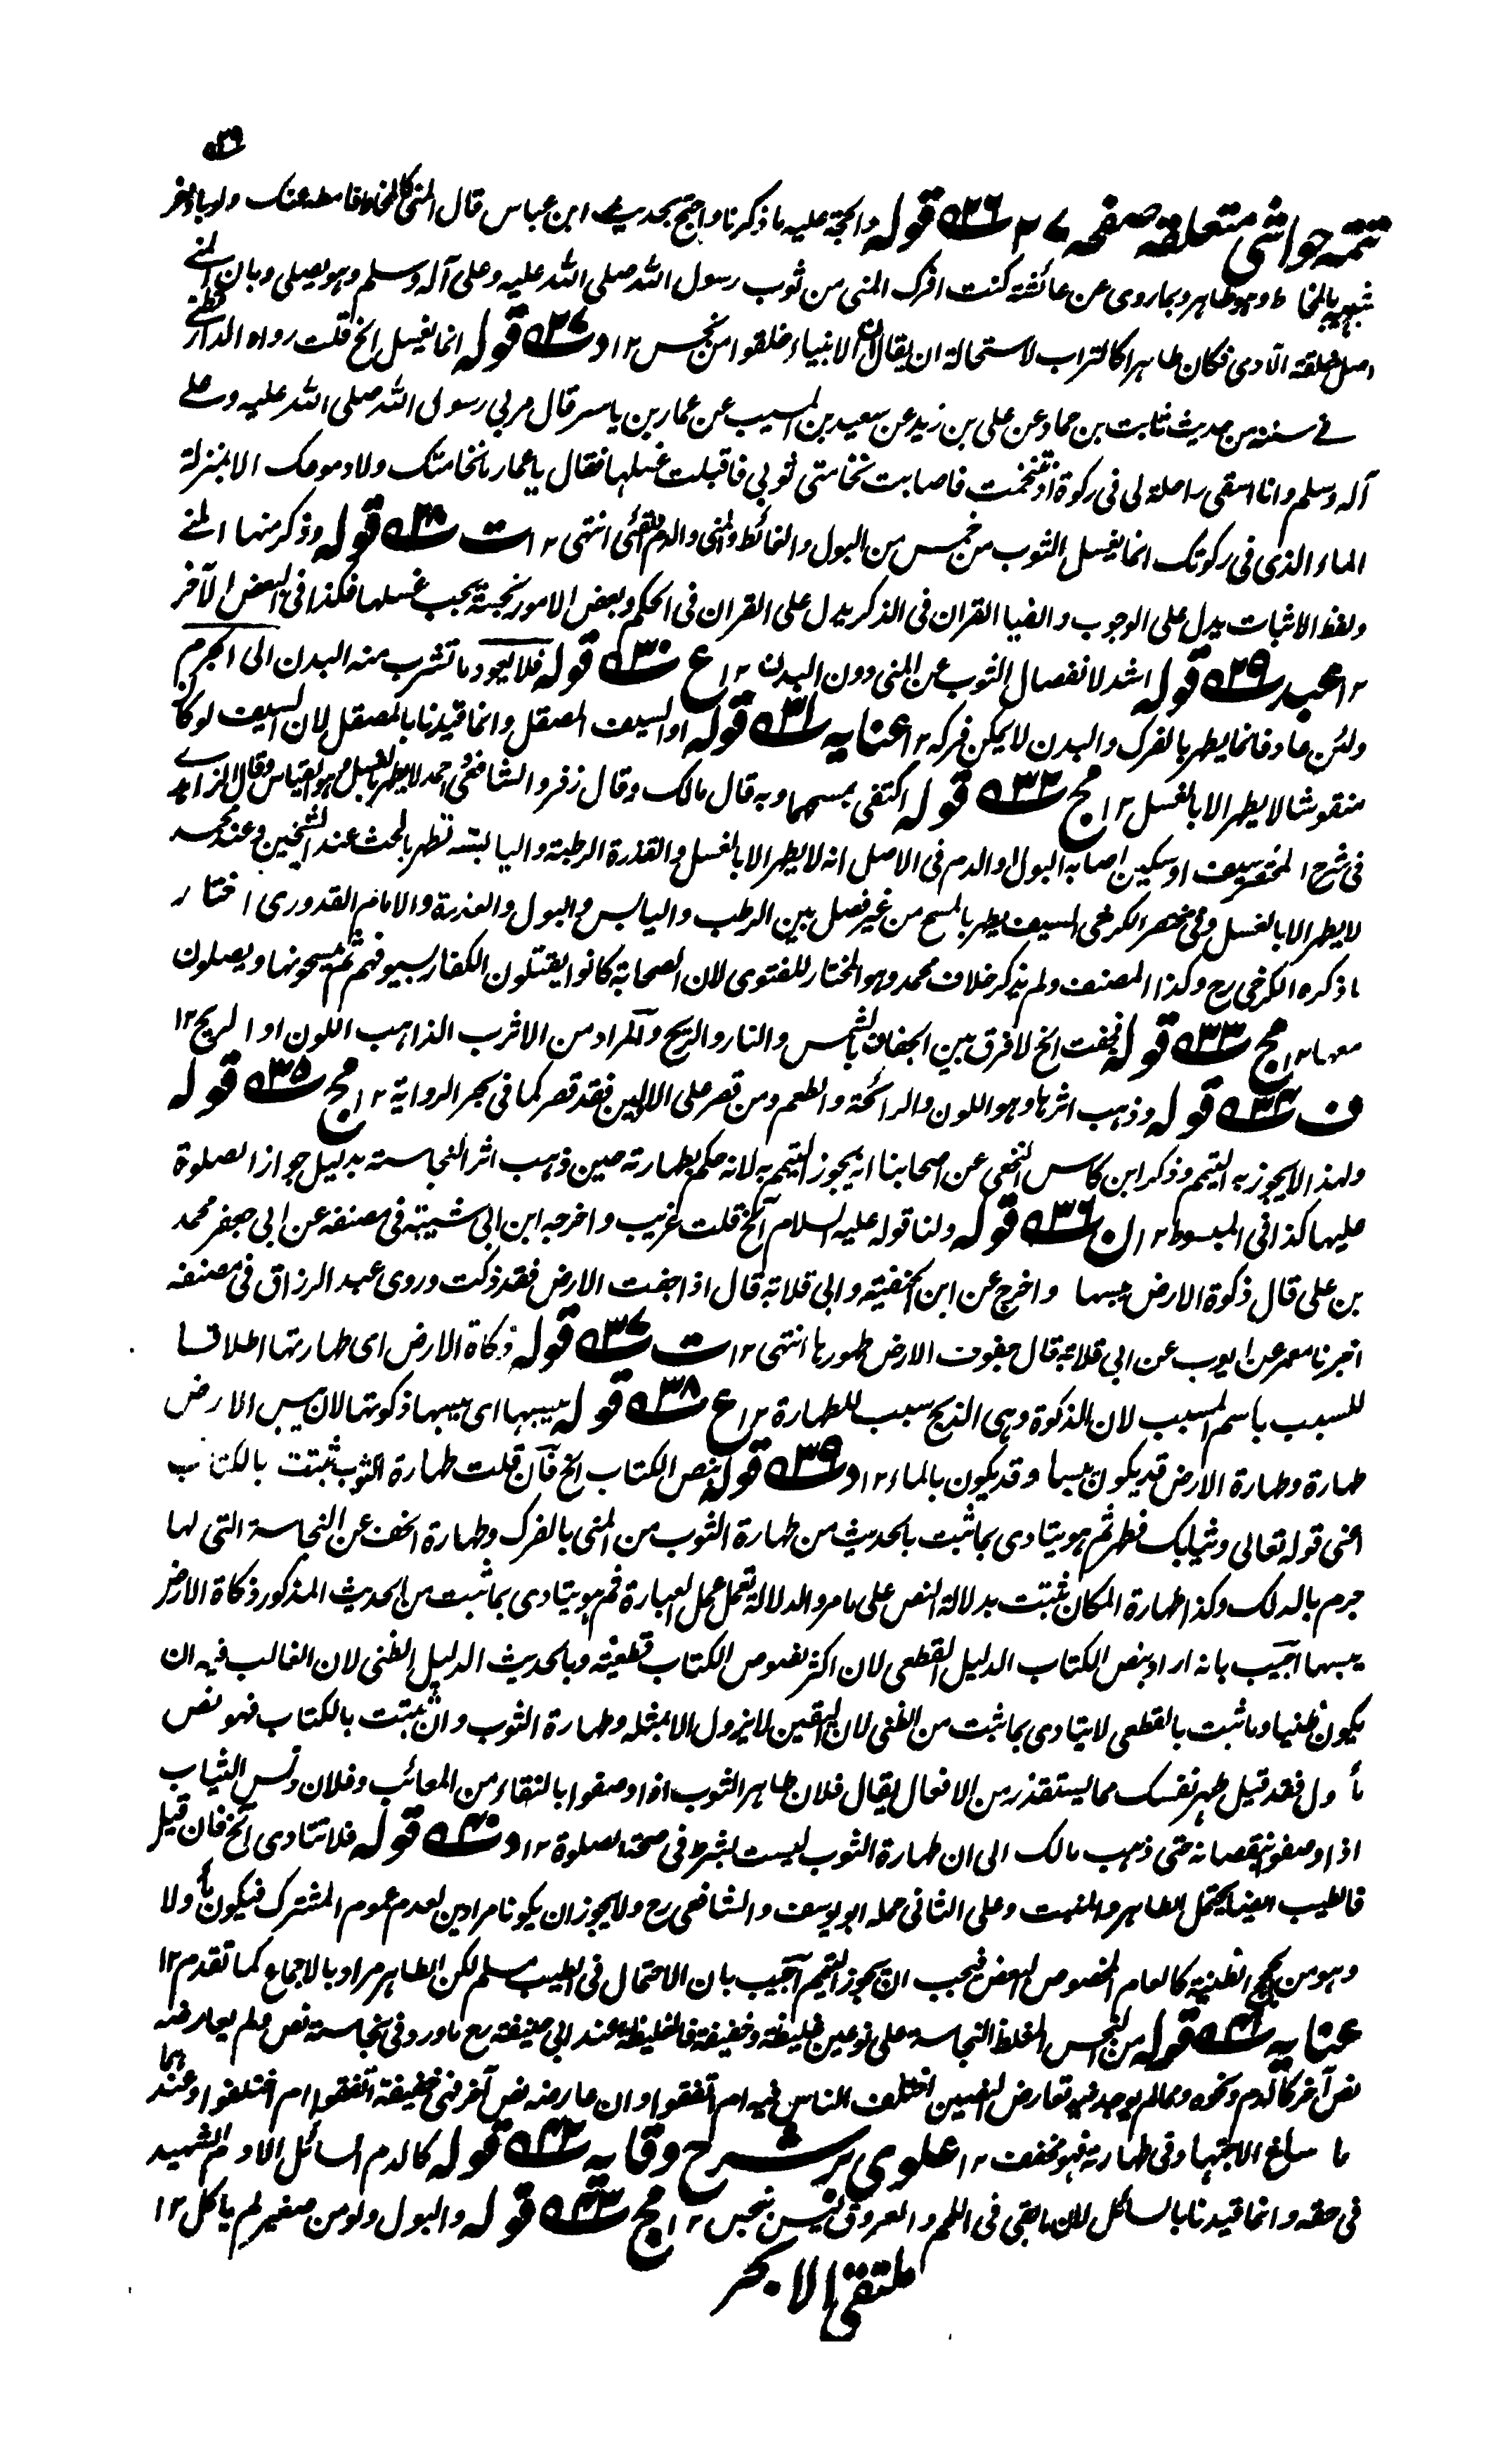 ۵۳۹
تتمه حواشی متعلقه صفحه ۷۲ ۵۲۶ قوله والحجة علیه ما ذکرنا واحتج بحدیث ابن عباس قال المنی کالمخاط فامطه عنک ولو باذخر
شبهه بالمخاط وهو طاهر وبما روی عن عائشة کنت افرک المنی من ثوب رسول الله صلی الله علیه وعلی آله وسلم وهو یصلی وبان المنی
اصل خلقة الآدمی فکان طاهرا کالتراب لاستحالة ان یقال ان الانبیاء خلقوا من نجس ۱۲ د ۵۲۷ قوله انما یغسل الخ قلت رواه الدارقطنی
فی سننه من حدیث ثابت بن حماد عن علی بن زید عن سعید بن المسیب عن عمار بن یاسر قال مر بی رسول الله صلی الله علیه وعلی
آله وسلم وانا اسقی راحلة لی فی رکوة اذ تنخمت فاصابت نخامتی ثوبی فاقبلت غسلها فقال یا عمار ما نخامتک ولا دموعک الا بمنزلة
الماء الذی فی رکوتک انما یغسل الثوب من خمس من البول والغائط والمنی والدم والقئ انتهی ۱۲ ت ۵۲۸ قوله وذکر منها المنی
ولفظ الاثبات یدل علی الوجوب وایضا القران فی الذکر یدل علی القران فی الحکم وبعض الامور نجسة یجب غسلها فکذا فی البعض الآخر
۱۲ عبد ۵۲۹ قوله اشد لانفصال الثوب عن المنی دون البدن ۱۲ ع ۵۳۰ قوله فلا یعود ما تشرب منه البدن الی الجرم
ولئن عاد فانما یطهر بالفرک والبدن لا یمکن فرکه ۱۲ عنایه ۵۳۱ قوله او السیف المصقل وانما قیدنا بالمصقل لان السیف لو کان
منقوشا لا یطهر الا بالغسل ۱۲ مج ۵۳۲ قوله اکتفی بمسحهما وبه قال مالک وقال زفر والشافعی واحمد لا یطهر الا بالغسل وهو القیاس وقال الزاهدی
فی شرح المختصر سیف او سکین اصابه البول او الدم فی الاصل انه لا یطهر الا بالغسل والقذرة الرطبة والیابسة تطهر بالحت عند الشیخین وعند محمد
لا یطهر الا بالغسل وفی مختصر الکرخی السیف یطهر بالمسح من غیر فصل بین الرطب والیابس والبول والعذرة والامام القدوری اختار
ما ذکره الکرخی رح وکذا المصنف ولم یذکر خلاف محمد وهو المختار للفتوی لان الصحابة کانوا یقتلون الکفار بسیوفهم ثم یمسحونها ویصلون
معها ۱۲ مج ۵۳۳ قوله فجفت الخ لا فرق بین الجفاف بالشمس والنار والریح والمراد من الاثر الذاهب اللون او الریح ۱۲
ف ۵۳۴ قوله وذهب اثرها وهو اللون والرائحة والطعم ومن قصر علی الاولین فقد قصر کما فی بحر الروایة ۱۲ مج ۵۳۵ قوله
ولهذا لا یجوز به التیمم وذکر ابن کاس النخعی عن اصحابنا انه یجوز التیمم به لانه حکم بطهارته حین ذهب اثر النجاسة بدلیل جواز الصلوة
علیها کذا فی المبسوط ۱۲ ن ۵۳۶ قوله ولنا قوله علیه السلام الخ قلت غریب واخرجه ابن ابی شیبة فی مصنفه عن ابی جعفر محمد
بن علی قال ذکوة الارض یبسها واخرج عن ابن الحنفیة وابی قلابة قال اذا جفت الارض فقد ذکت وروی عبد الرزاق فی مصنفه
اخبرنا معمر عن ایوب عن ابی قلابة قال جفوف الارض طهورها انتهی ۱۲ ت ۵۳۷ قوله ذکاة الارض ای طهارتها اطلاقا
للسبب باسم المسبب لان الذکوة وهی الذبح سبب للطهارة ۱۲ ع ۵۳۸ قوله یبسها ای یبسها ذکوتها لان یبس الارض
طهارة وطهارة الارض قد یکون یبسها وقد یکون بالماء ۱۲ د ۵۳۹ قوله بنص الکتاب الخ فان قلت طهارة الثوب ثبتت بالکتاب
اعنی قوله تعالی وثیابک فطهر ثم هو یتادی بما ثبت بالحدیث من طهارة الثوب من المنی بالفرک وطهارة الخف عن النجاسة التی لها
جرم بالدلک وکذا طهارة المکان ثبتت بدلالة النص علی ما مر والدلالة تعمل عمل العبارة ثم هو یتادی بما ثبت من الحدیث المذکور ذکاة الارض
یبسها اجیب بانه اراد بنص الکتاب الدلیل القطعی لان اکثر نصوص الکتاب قطعیة وبالحدیث الدلیل الظنی لان الغالب فیه ان
یکون ظنیا وما ثبت بالقطعی لا یتادی بما ثبت من الظنی لان الیقین لا یزول الا بمثله وطهارة الثوب وان ثبتت بالکتاب فهو نص
مأول فقد قیل طهر نفسک مما یستقذر من الافعال یقال فلان طاهر الثوب اذا وصفوا بالنقاء من المعائب وفلان دنس الثیاب
اذا وصفوه بنقصانه حتی ذهب مالک الی ان طهارة الثوب لیست بشرط فی صحة الصلوة ۱۲ د ۵۴۰ قوله فلا تتادی الخ فان قیل
فالطیب ایضا یحتمل الطاهر والمنبت وعلی الثانی حمله ابو یوسف والشافعی رح ولا یجوز ان یکونا مرادین لعدم عموم المشترک فیکون مأولا
وهو من الحجج الظنیة کالعام المخصوص البعض فیجب ان یجوز التیمم اجیب بان الاحتمال فی الطیب مسلم لکن الطاهر مراد بالاجماع کما تقدم ۱۲
عنایه ۵۴۱ قوله من النجس المغلظ النجاسة علی نوعین غلیظة وخفیفة فالغلیظة عند ابی حنیفة رح ما ورد فی نجاسته نص ولم یعارضه
نص آخر کالدم ونحوه ومما لم یوجد فیه تعارض النصین اختلف الناس فیه ام اتفقوا وان عارضه نص آخر فهی خفیفة اتفقوا ام اختلفوا وعندهما
ما ساغ الاجتهاد فی طهارته فهو مخفف ۱۲ علوی بر شرح وقایه ۵۴۲ قوله کالدم السائل الا دم الشهید
فی حقه وانما قیدنا بالسائل لان ما بقی فی اللحم والعروق لیس بنجس ۱۲ مج ۵۴۳ قوله والبول ولو من صغیر لم یاکل ۱۲
ملتقی الابحر